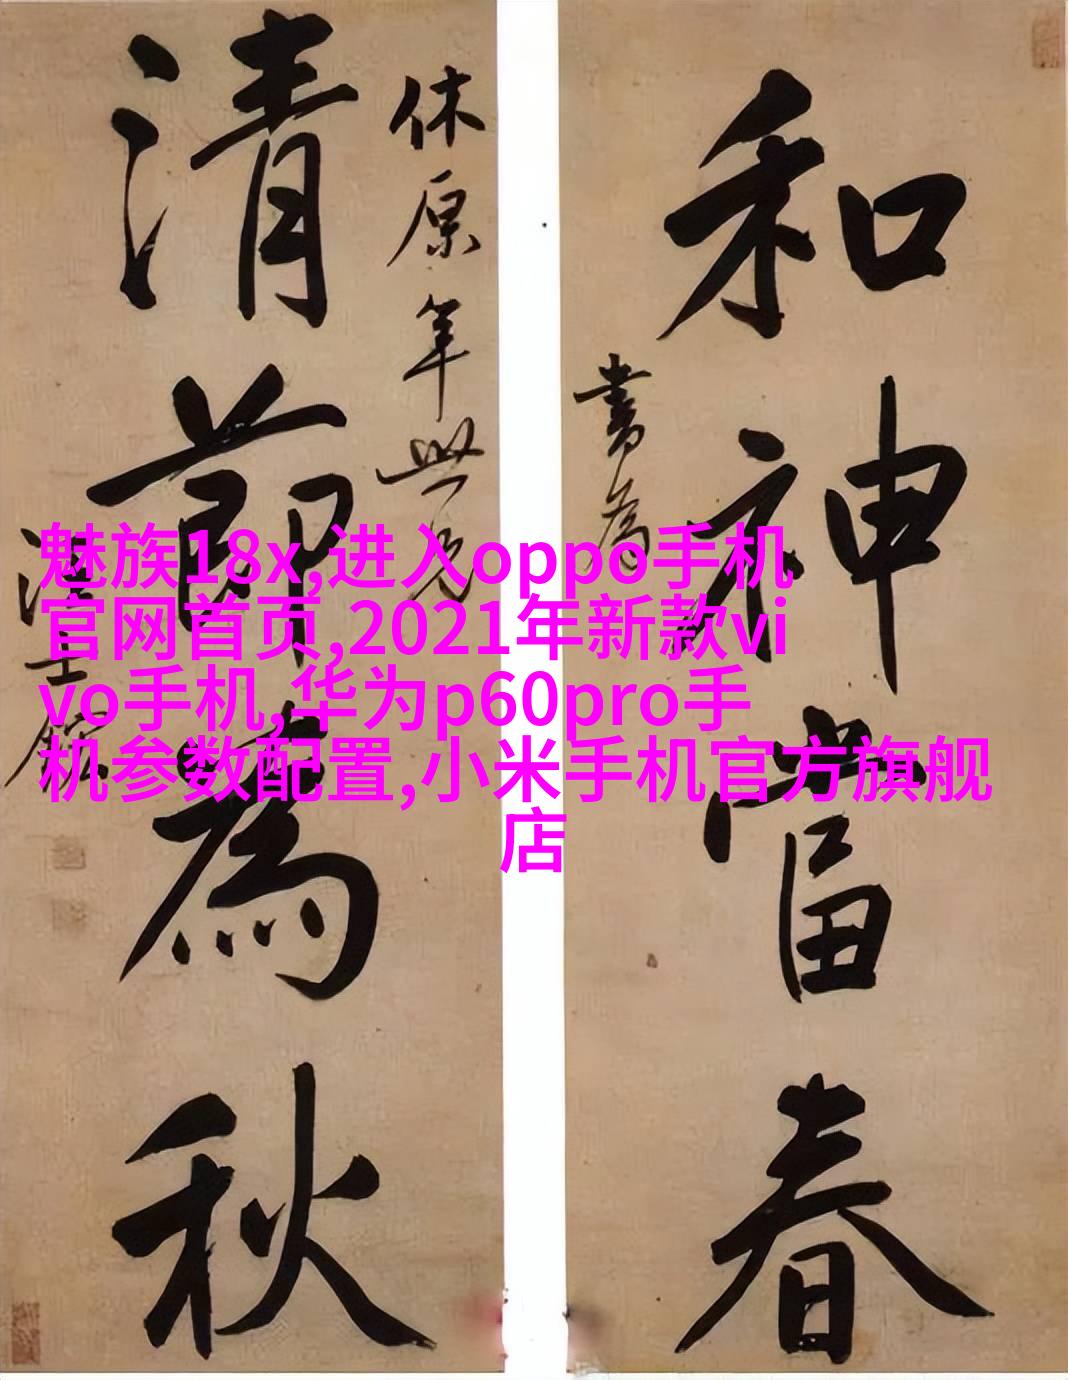 和神當春
書為
休原年世兄
清節為秋
汪士鋐
魅族18x,进入oppo手机
官网首页,2021年新款vi
vo手机,华为p60pro手
机参数配置,小米手机官方旗舰
店